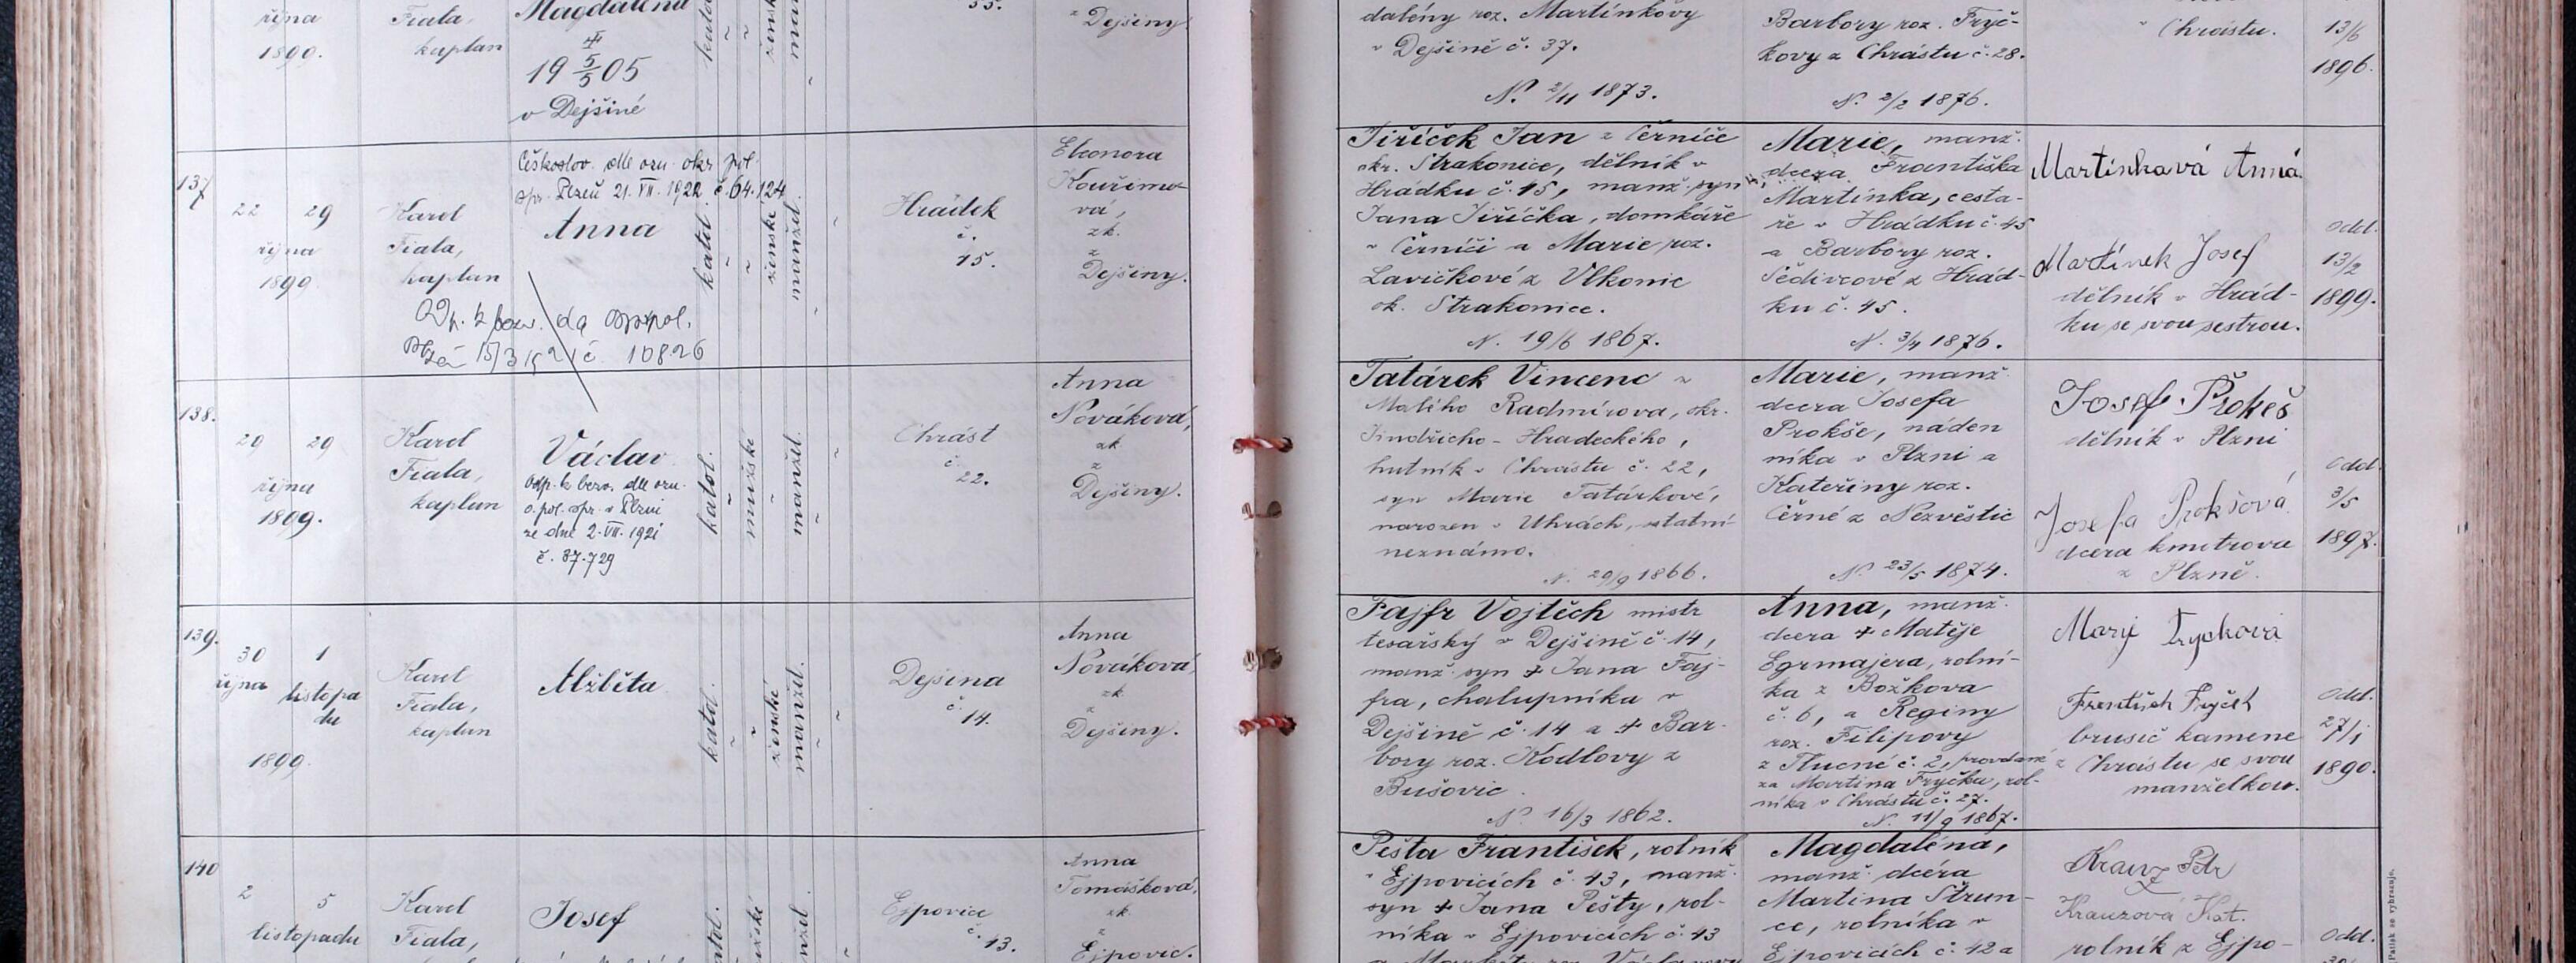 října
1899.
Fiala,
kaplan
Magdalena
✝
19 5/5 05
v Dejšině
katol
ženské
55.
z Dejšiny.
dalény roz. Martínkovy
v Dejšině č. 37.
N. 2/11 1873.
Barbory roz. Fryč-
kovy z Chrástu č. 28.
N. 2/2 1876.
Chrástu.
13/6
1896.
137
22 29
října
1899
Karel
Fiala,
kaplan
Českoslov. dle ozn. okr. pol.
spr. Plzeň 21. VII. 1922 č. 64.124
Anna
Plzeň 15/3 č. 10826
katol.
ženské
manžel.
Hrádek
č.
15.
Eleonora
Kouřimo-
vá,
zk.
z
Dejšiny.
Jiříček Jan z Černíče
okr. Strakonice, dělník v
Hrádku č. 15, manž. syn
Jana Jiříčka, domkáře
v Černíči a Marie roz.
Lavičkové z Vlkonic
ok. Strakonice.
N. 19/6 1867.
Marie, manž.
dcera Františka
Martínka, cesta-
ře v Hrádku č. 45
a Barbory roz.
Šedivcové z Hrád-
ku č. 45.
N. 3/4 1876.
Martínková Anna
Martínek Josef
dělník v Hrád-
ku se svou sestrou.
Odd.
13/2
1899.
138.
29 29
října
1899.
Karel
Fiala,
kaplan
Václav
Odp. k bezv. dle ozn.
o. pol. spr. v Plzni
ze dne 2. VII. 1921
č. 37.729
katol.
mužské
manžel.
Chrást
č.
22.
Anna
Nováková,
zk
z
Dejšiny.
Tatárek Vincenc z
Malího Radmírova, okr.
Jindřicho-Hradeckého,
hutník v Chrástu č. 22,
syn Marie Tatárkové,
narozen v Uhrách, ostatní
neznámo.
N. 29/9 1866.
Marie, manž.
dcera Josefa
Prokše, náden
níka v Plzni a
Kateřiny roz.
Černé z Nezvěstic
N. 23/5 1874.
Josef Prokeš
dělník v Plzni
Josefa Prokšová
dcera kmotrova
z Plzně.
Odd.
3/5
1897.
139.
30 1
října listopa
du
1899.
Karel
Fiala,
kaplan
Alžběta
katol.
ženské
manžel.
Dejšina
č.
14.
Anna
Nováková,
zk
z
Dejšiny.
Fajfr Vojtěch mistr
tesařský v Dejšině č. 14,
manž. syn ✝ Jana Faj-
fra, chalupníka v
Dejšině č. 14 a ✝ Bar-
bory roz. Kodlovy z
Bušovic.
N. 16/3 1862.
Anna, manž.
dcera ✝ Matěje
Egrmajera, rolní-
ka z Božkova
č. 6, a Reginy
roz. Filipovy
z Tlucné č. 2, provdané
za Martina Fryčka, rol-
níka v Chrástu č. 27.
N. 11/9 1867.
Mari Frycková
František Fryček
brusič kamene
z Chrástu se svou
manželkou.
Odd.
27/1
1890.
140
2 5
listopadu
Karel
Fiala,
Josef
katol.
mužské
manžel
Ejpovice
č.
43.
Anna
Tomášková,
zk.
z
Ejpovic.
Pešta František, rolník
v Ejpovicích č. 43, manž.
syn ✝ Jana Pešty, rol-
níka v Ejpovicích č. 43
Magdaléna,
manž. dcéra
Martina Štrun-
ce, rolníka v
Ejpovicích č. 42 a
Krauz Petr
Krauzová Kat.
rolník z Ejpo-
Odd.